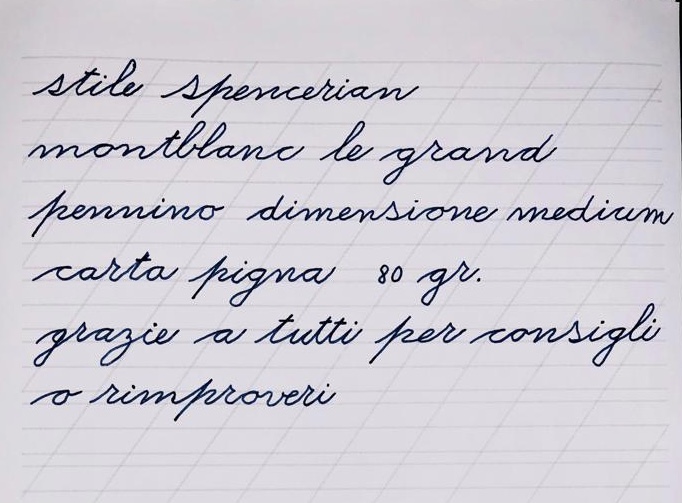 stile spencerian
montblanc le grand
pennino dimensione medium
carta pigna 80 gr.
grazie a tutti per consigli
o rimproveri